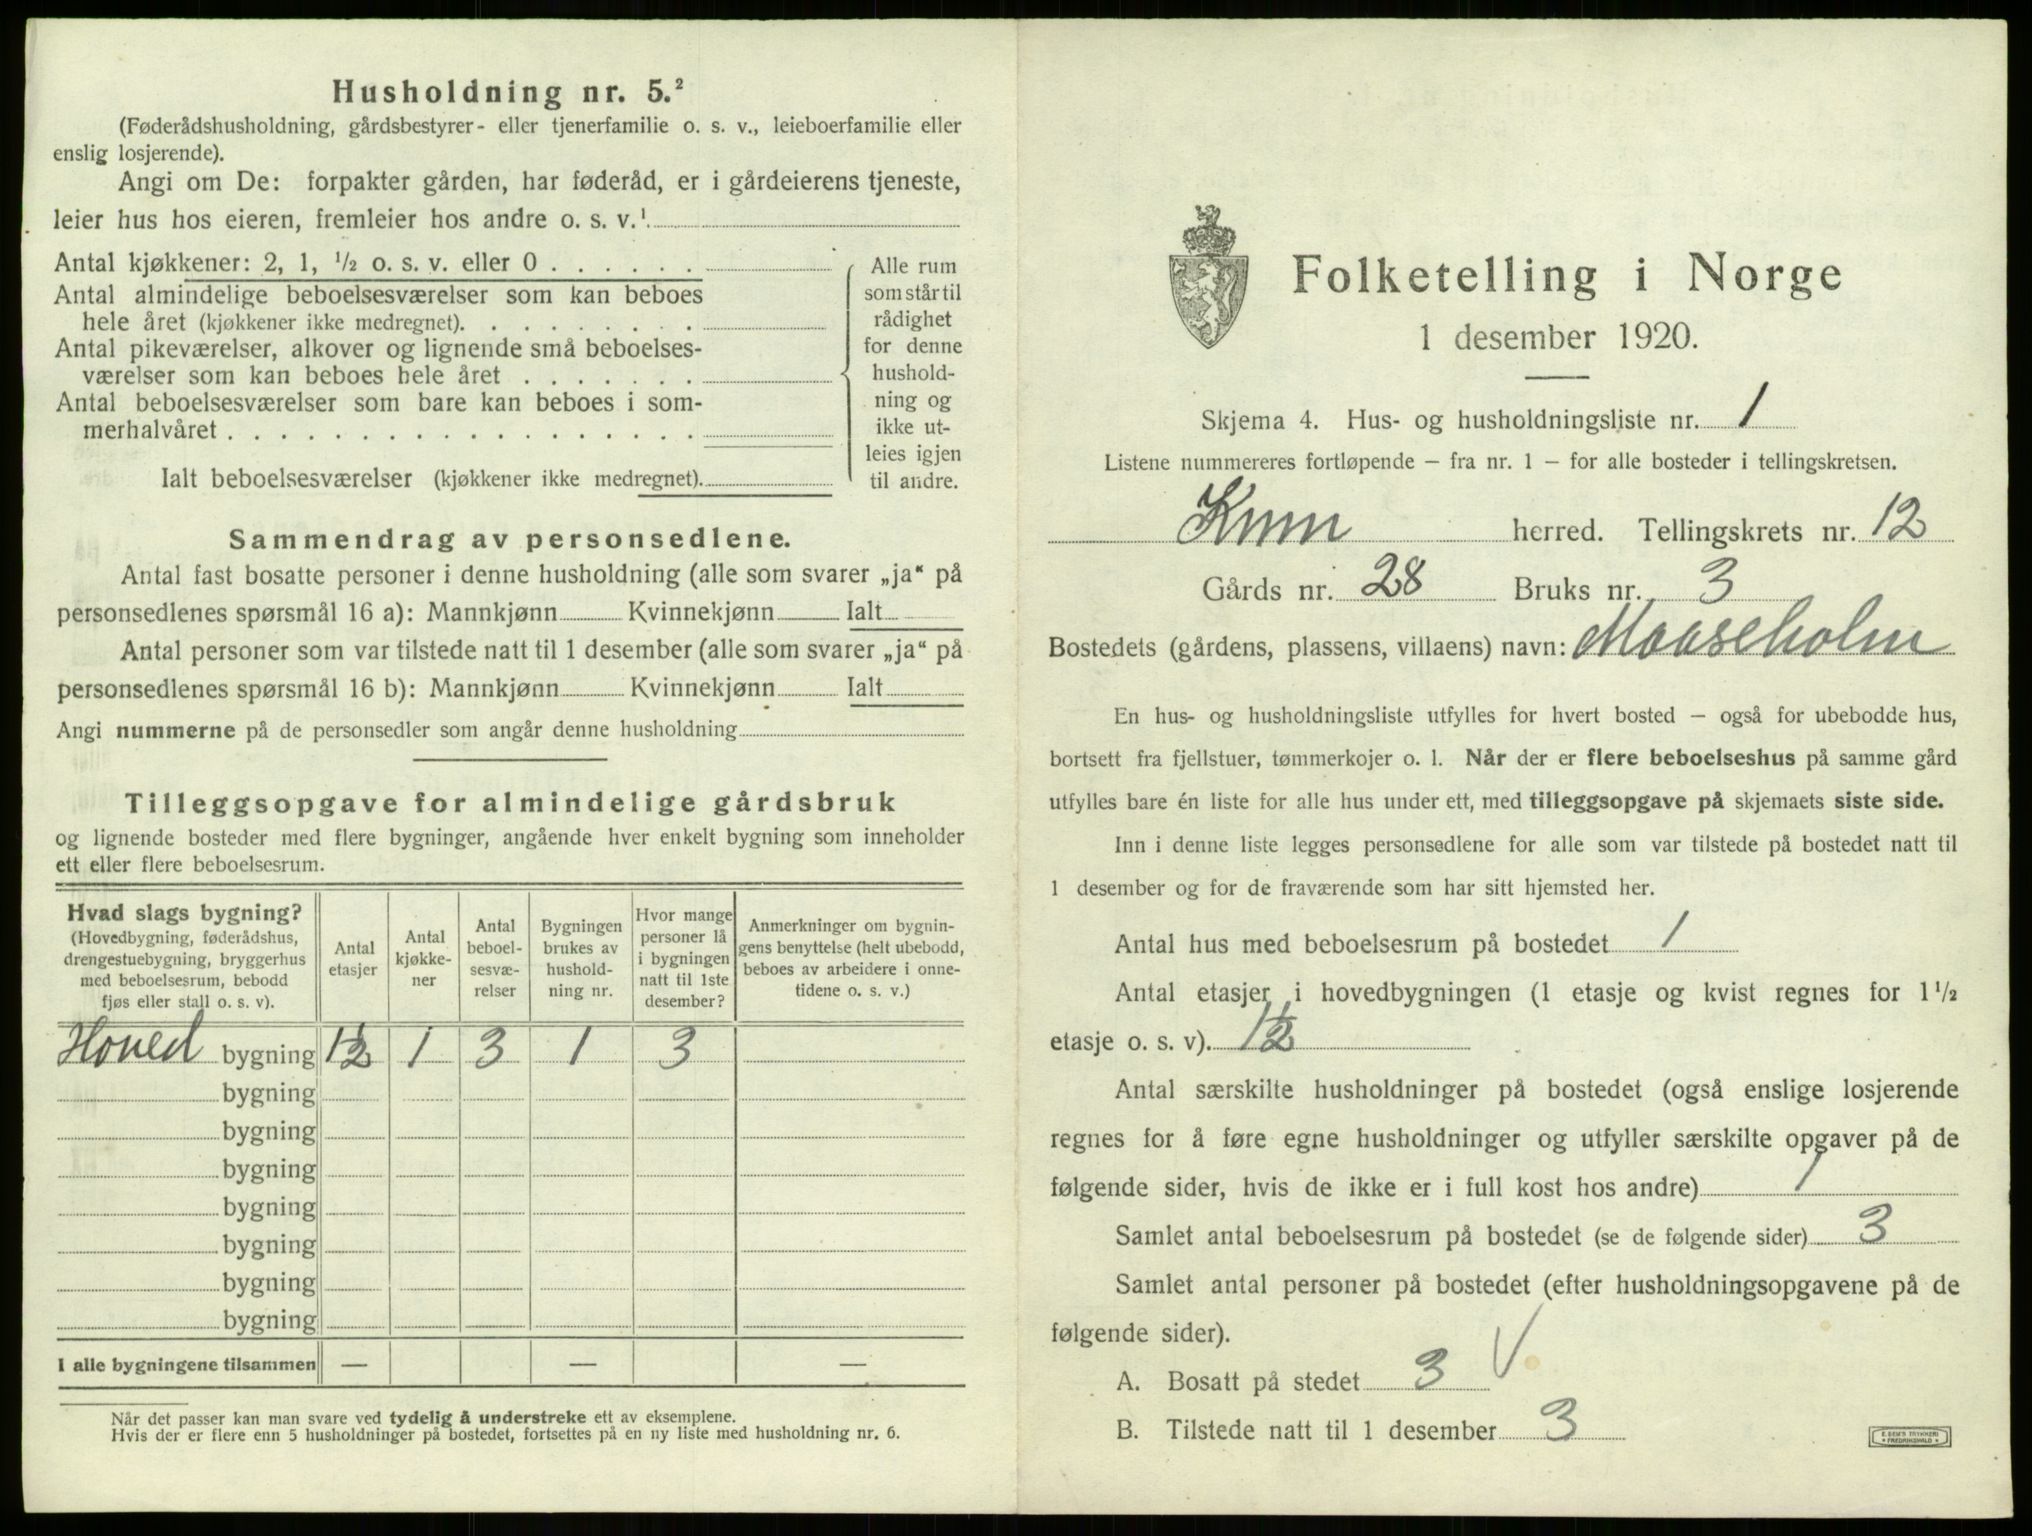 Husholdning nr. 5.²
(Føderådshusholdning, gårdsbestyrer- eller tjenerfamilie o. s. v., leieboerfamilie eller
enslig losjerende).
Angi om De: forpakter gården, har føderåd, er i gårdeierens tjeneste,
leier hus hos eieren, fremleier hos andre o. s. v.¹
Antal kjøkkener: 2, 1, ½ o. s. v. eller 0
Antal almindelige beboelsesværelser som kan beboes
hele året (kjøkkener ikke medregnet).
Antal pikeværelser, alkover og lignende små beboelses-
værelser som kan beboes hele året
Antal beboelsesværelser som bare kan beboes i som-
merhalvåret
Ialt beboelsesværelser (kjøkkener ikke medregnet).
Alle rum
som står til
rådighet
for denne
hushold-
ning og
ikke ut-
leies igjen
til andre.
Sammendrag av personsedlene.
Antal fast bosatte personer i denne husholdning (alle som svarer „ja“ på
personsedlenes spørsmål 16 a): Mannkjønn Kvinnekjønn Ialt
Antal personer som var tilstede natt til 1 desember (alle som svarer „ja“ på
personsedlenes spørsmål 16 b): Mannkjønn Kvinnekjønn Ialt
Angi nummerne på de personsedler som angår denne husholdning
Tilleggsopgave for almindelige gårdsbruk
og lignende bosteder med flere bygninger, angående hver enkelt bygning som inneholder
ett eller flere beboelsesrum.
Hvad slags bygning?
(Hovedbygning, føderådshus,
drengestuebygning, bryggerhus
med beboelsesrum, bebodd
fjøs eller stall o. s. v).
Antal
etasjer
Antal
kjøkke-
ner
Antal
beboel-
sesvæ-
relser
Bygningen
brukes av
hushold-
ning nr.
Hvor mange
personer lå
i bygningen
natt til 1ste
desember?
Anmerkninger om bygnin-
gens benyttelse (helt ubebodd,
beboes av arbeidere i onne-
tidene o. s. v.)
Hoved bygning 1½ 1 3 1 3
bygning
bygning
bygning
bygning
bygning
bygning
bygning
I alle bygningene tilsammen — — —
Når det passer kan man svare ved tydelig å understreke ett av eksemplene.
Hvis der er flere enn 5 husholdninger på bostedet, fortsettes på en ny liste med husholdning nr. 6.
Folketelling i Norge
1 desember 1920.
Skjema 4. Hus- og husholdningsliste nr. 1
Listene nummereres fortløpende – fra nr. 1 – for alle bosteder i tellingskretsen.
Kinn herred. Tellingskrets nr. 12
Gårds nr. 28 Bruks nr. 3
Bostedets (gårdens, plassens, villaens) navn: Maaseholm
En hus- og husholdningsliste utfylles for hvert bosted – også for ubebodde hus,
bortsett fra fjellstuer, tømmerkojer o. l. Når der er flere beboelseshus på samme gård
utfylles bare én liste for alle hus under ett, med tilleggsopgave på skjemaets siste side.
Inn i denne liste legges personsedlene for alle som var tilstede på bostedet natt til
1 desember og for de fraværende som har sitt hjemsted her.
Antal hus med beboelsesrum på bostedet 1
Antal etasjer i hovedbygningen (1 etasje og kvist regnes for 1½
etasje o. s. v). 1½
Antal særskilte husholdninger på bostedet (også enslige losjerende
regnes for å føre egne husholdninger og utfyller særskilte opgaver på de
følgende sider, hvis de ikke er i full kost hos andre) 1
Samlet antal beboelsesrum på bostedet (se de følgende sider) 3
Samlet antal personer på bostedet (efter husholdningsopgavene på de
følgende sider).
A. Bosatt på stedet 3
B. Tilstede natt til 1 desember 3
E. SEM'S TRYKKERI
FREDRIKSHALD